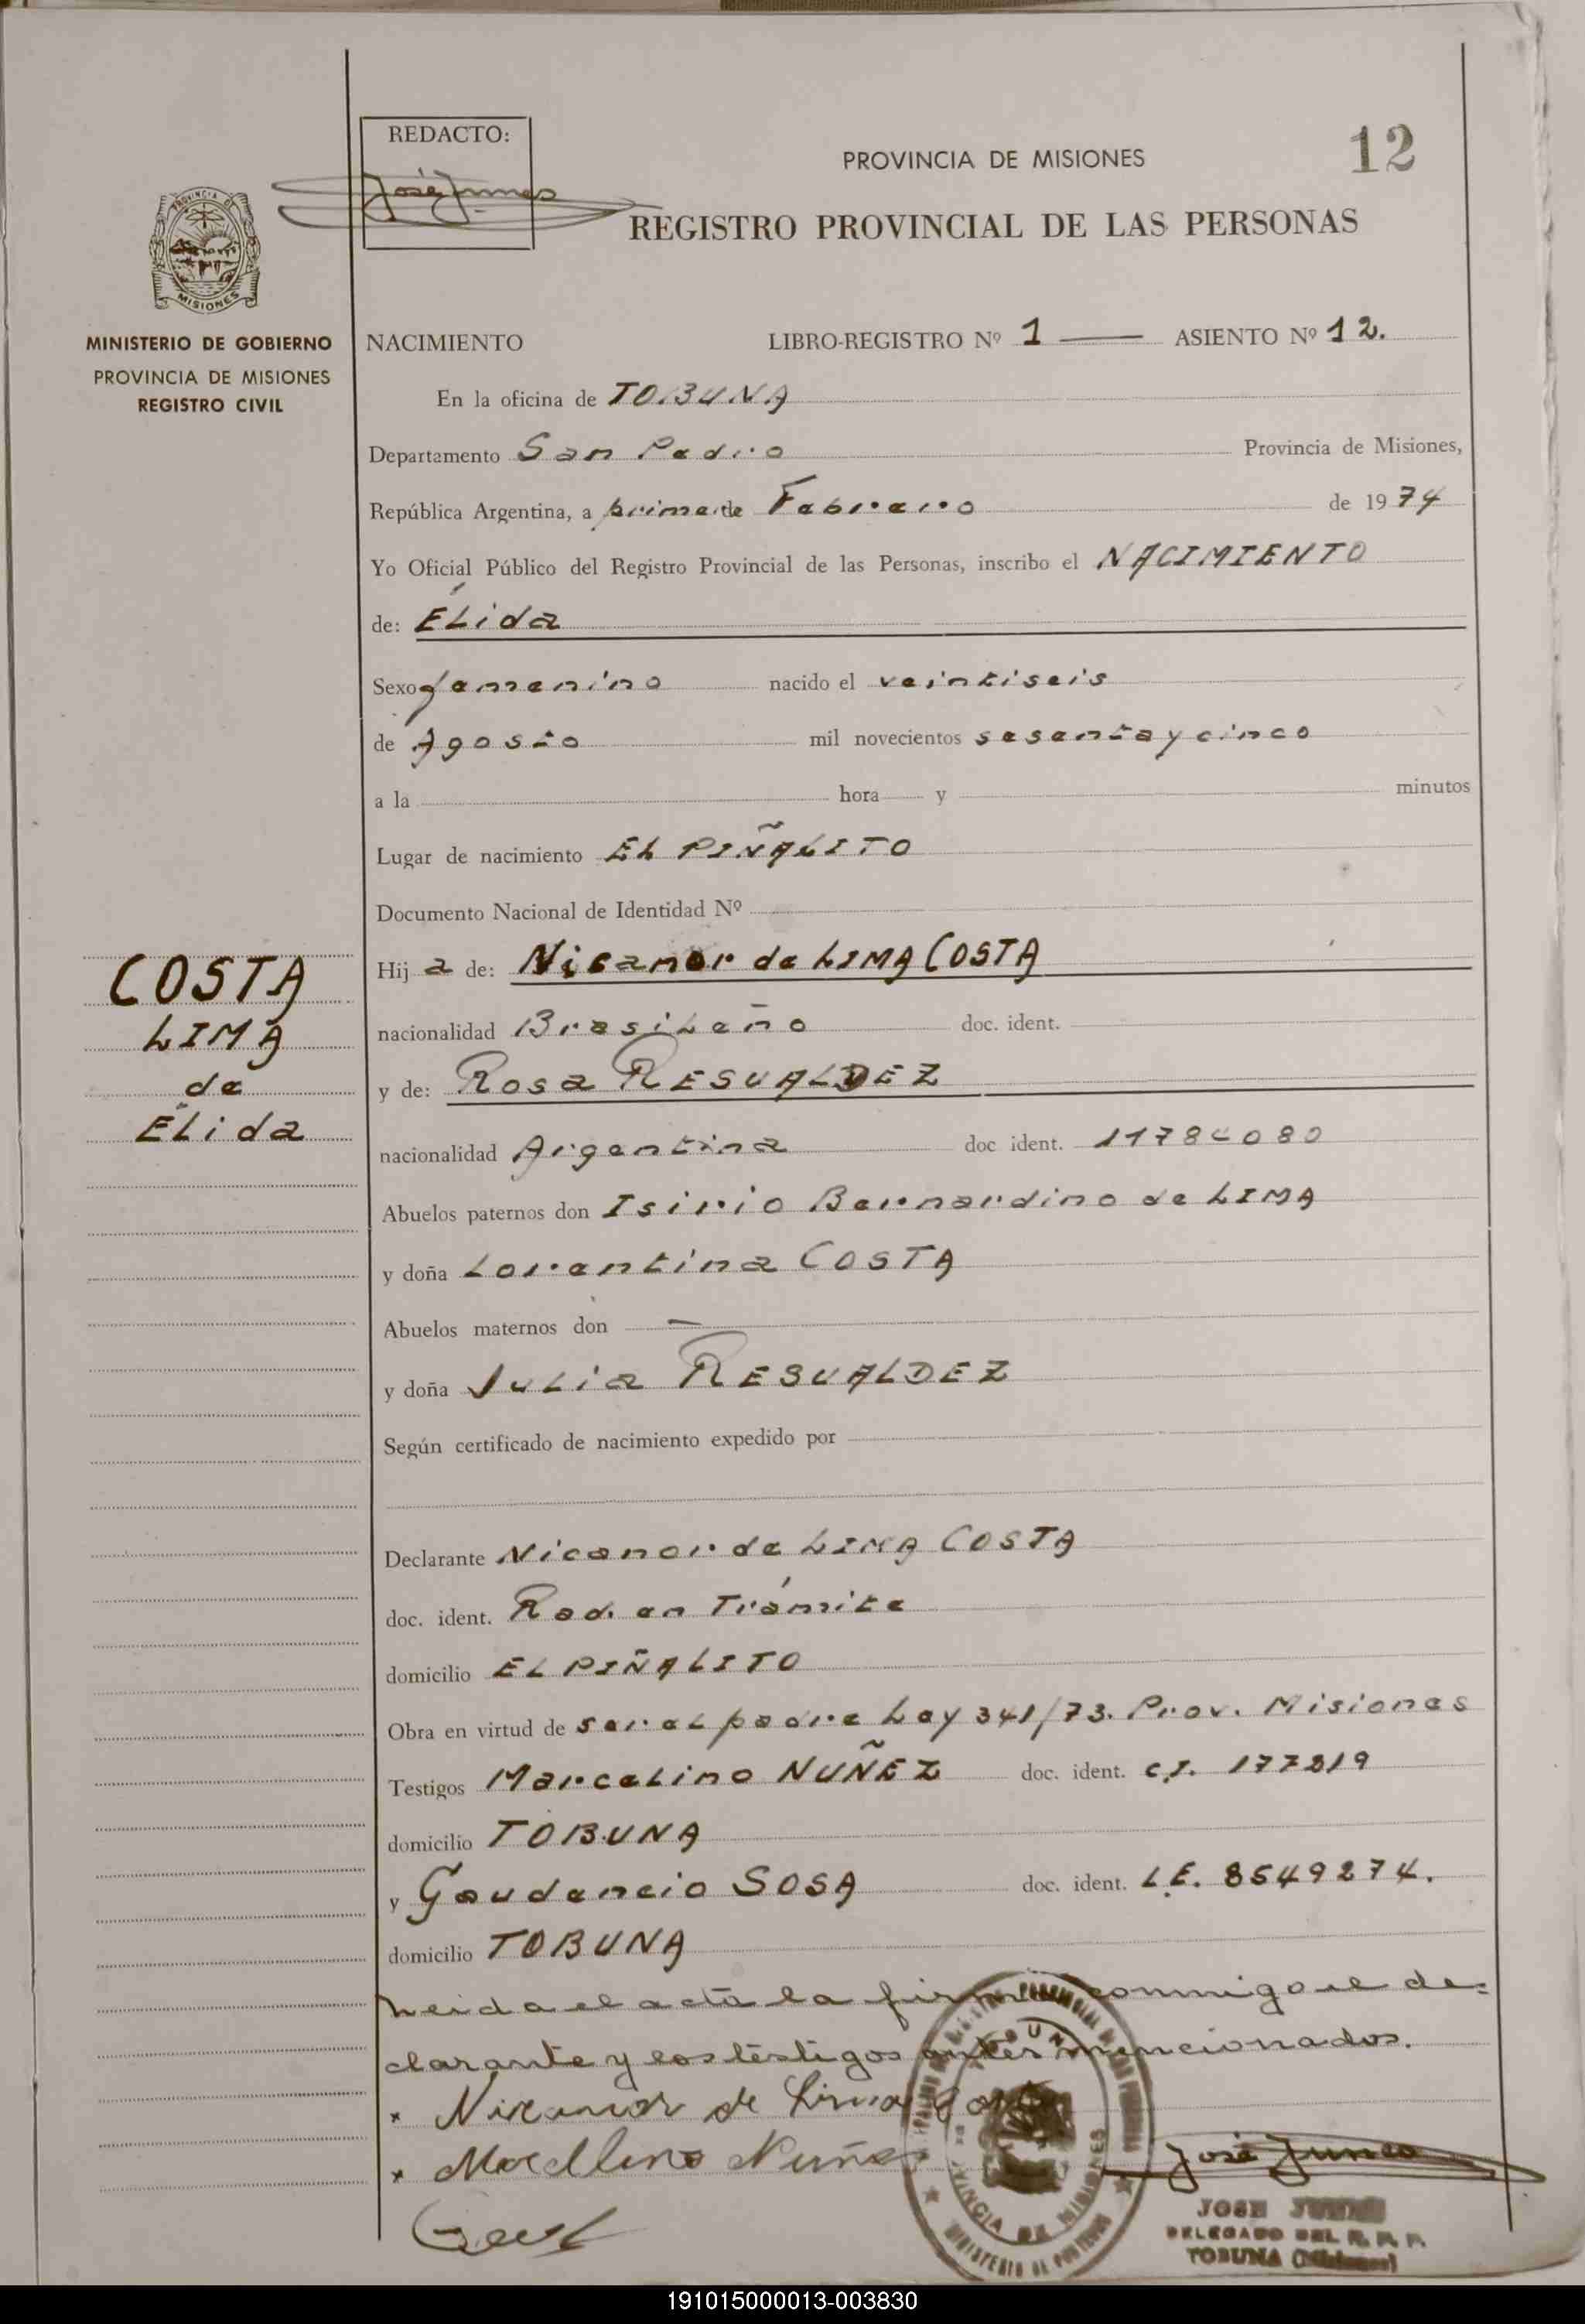 REDACTO:
12
PROVINCIA DE MISIONES
REGISTRO PROVINCIAL DE LAS PERSONAS
PROVINCIA DE
MISIONES
MINISTERIO DE GOBIERNO
PROVINCIA DE MISIONES
REGISTRO CIVIL
NACIMIENTO LIBRO-REGISTRO Nº 1 ASIENTO Nº 12.
En la oficina de TOBUNA
Departamento San Pedro Provincia de Misiones,
República Argentina, a primero de Febrero de 1974
Yo Oficial Público del Registro Provincial de las Personas, inscribo el NACIMIENTO
de: ÉLida
Sexo femenino nacido el veintiseis
de Agosto mil novecientos sesenta y cinco
a la hora y minutos
Lugar de nacimiento EL PIÑALITO
Documento Nacional de Identidad Nº
COSTA
LIMA
de
Élida
Hija de: Nicanor de LIMA COSTA
nacionalidad Brasileño doc. ident.
y de: Rosa RESUALDEZ
nacionalidad Argentina doc ident.
Abuelos paternos don Isirio Bernardino de LIMA
y doña Lorentina COSTA
Abuelos maternos don —
y doña Julia RESUALDEZ
Según certificado de nacimiento expedido por
Declarante Nicanor de LIMA COSTA
doc. ident. Rad. en Trámite
domicilio EL PIÑALITO
Obra en virtud de ser el padre Ley 341/73. Prov. Misiones
Testigos Marcelino NUÑEZ doc. ident. C.I. 177819
domicilio TOBUNA
y Gaudencio SOSA doc. ident. L.E. 8549274.
domicilio TOBUNA
Leida el acta la firma conmigo el de=
clarante y los testigos antes mencionados.
x Nicanor de Lima Costa
x Marcelino Nuñez
JOSE
DELEGADO DEL R. P. P.
TOBUNA (Misiones)
PROVINCIA DE MISIONES
191015000013-003830